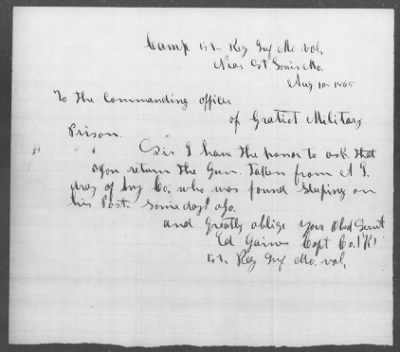 Camp 51 Reg Inf Mo. vol,
Near St Louis Mo.
Aug 10 1865
To the Commanding officer
of Gratiot Military
Prison.
Sir I have the honor to ask that
you return the Gun. Taken from
of my Co. who was found Sleeping on
his Post. Some days ago.
and Greatly oblige your Obed Servt
Ed Gaines Capt Co.
51. Reg Inf Mo. vol,